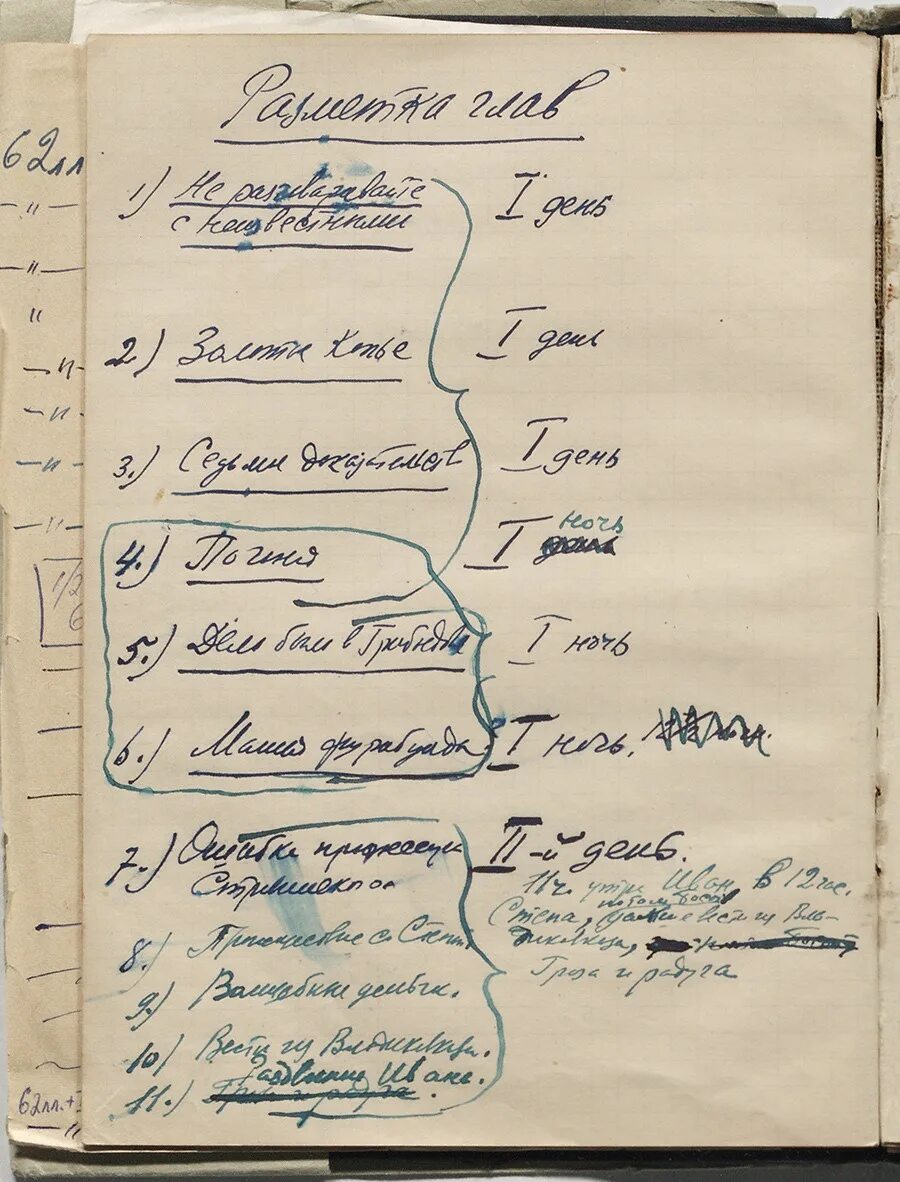 62лл
Разметка глав
1) Не разговаривайте I день
с неизвестными
2.) Золотое Копье I день
3.) Седьмое доказательство I день
4.) Погоня I ночь
5.) Дело было в Грибоедове I ночь
6.) Мания фурибунда. I ночь.
7.) Ошибка профессора II-й день.
Стравинского
11 ч. утра Иван, в 12 час.
Степа, потом Босой, далее вести из Вла-
дикавказа,
Гроза и радуга
8.) Происшествие со Степой
9.) Волшебные деньги.
10) Вести из Владикавказа.
Раздвоение Ивана.
11.) Гроза и радуга.
62лл.+